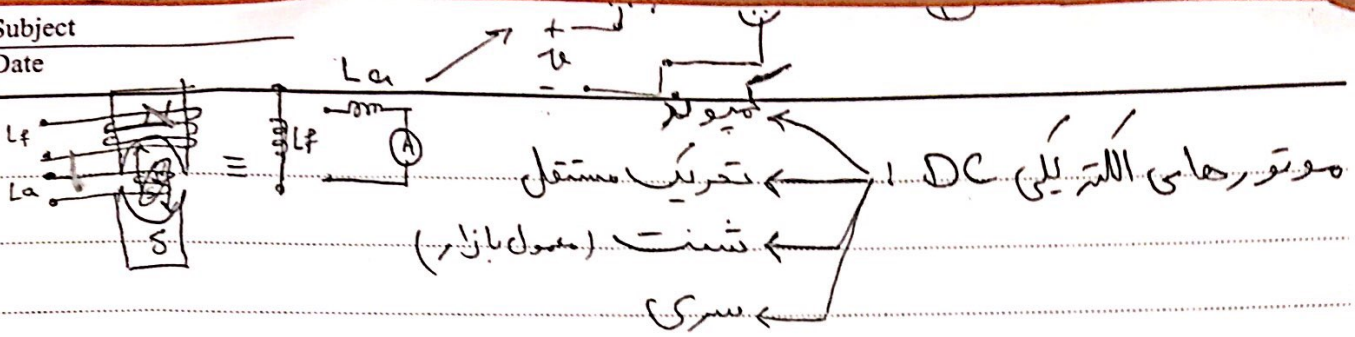 Subject
Date
+
v
-
La
N
Lf
La
≡
Lf
A
S
موتورهای الکتریکی DC :
تحریک مستقل
شنت (معمول بازار)
سری